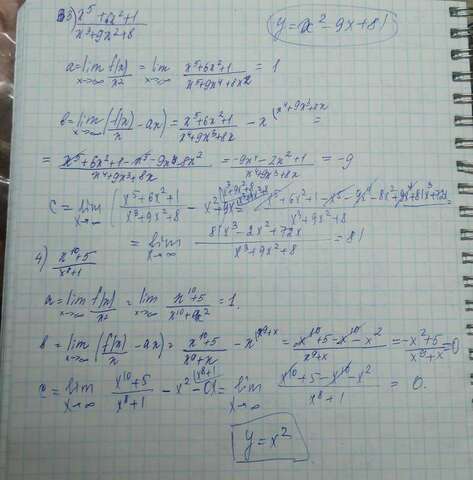 3) (x^5+6x^2+1)/(x^3+9x^2+8)   y=x^2-9x+81
a=lim_{x→∞} f(x)/x^2 = lim_{x→∞} (x^5+6x^2+1)/(x^5+9x^4+8x^2) = 1
b=lim_{x→∞} (f(x)/x - ax) = (x^5+6x^2+1)/(x^4+9x^3+8x) - x^{(x^4+9x^3+8x} =
= (x^5+6x^2+1-x^5-9x^4-8x^2)/(x^4+9x^3+8x) = (-9x^4-2x^2+1)/(x^4+9x^3+8x) = -9
c=lim_{x→∞} ((x^5+6x^2+1)/(x^3+9x^2+8) - x^2+9x = (x^5+6x^2+1-x^5-9x^4-8x^2+9x^4+81x^3+72x)/(x^3+9x^2+8) =
= lim_{x→∞} (81x^3-2x^2+72x)/(x^3+9x^2+8) = 81
4) (x^10+5)/(x^8+1)
a=lim_{x→∞} f(x)/x^2 = lim_{x→∞} (x^10+5)/(x^10+x^2) = 1.
b=lim_{x→∞} (f(x)/x - ax) = (x^10+5)/(x^9+x) - x^{(x^9+x} = (x^10+5-x^10-x^2)/(x^9+x) = (-x^2+5)/(x^9+x) = 0
c=lim_{x→∞} (x^10+5)/(x^8+1) - x^2-0x^{(x^8+1)} = lim_{x→∞} (x^10+5-x^10-x^2)/(x^8+1) = 0.
y=x^2